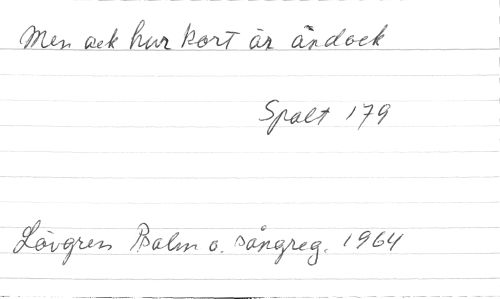 Men ack hur kort är ändock
Spalt 179
Lövgren Psalm o. sångreg. 1964